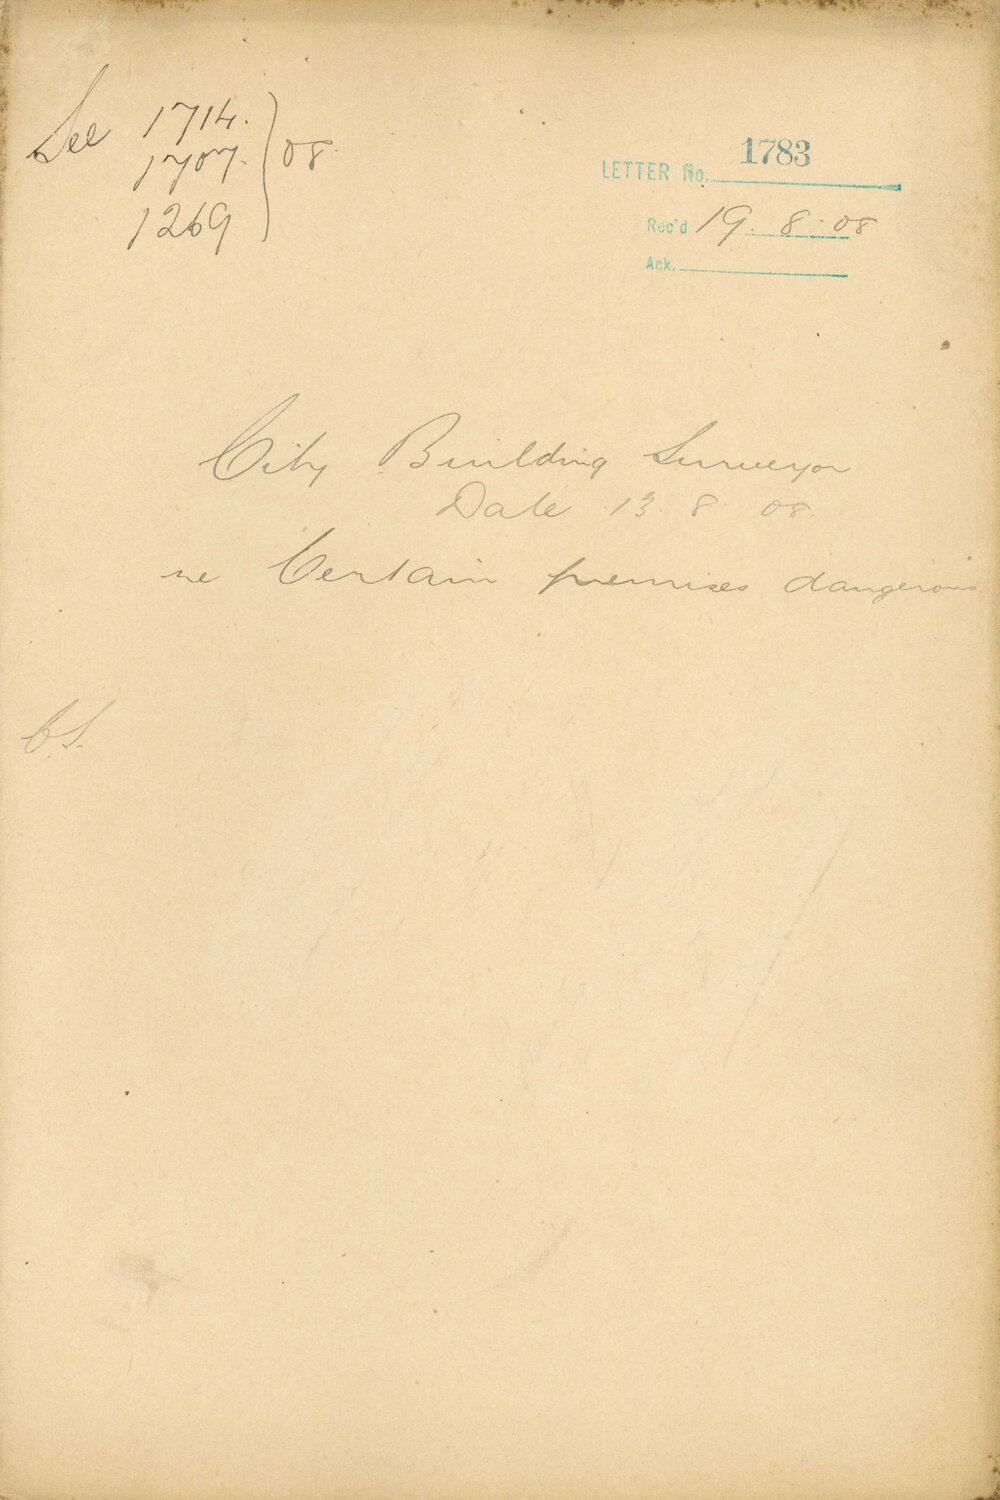 See 1714.
1707. } 08.
1269
LETTER No. 1783
Rec'd 19. 8. 08
Ack.
City Building Surveyor
Date 13. 8. 08.
re Certain premises dangerous
CS.